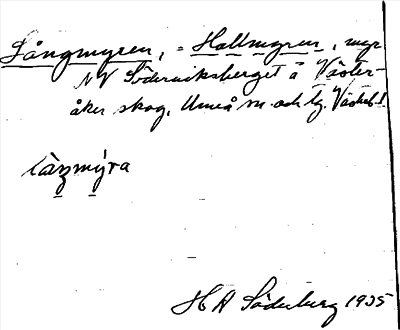 Långmyren, = Hallmyren, myr
NV Söderviksberget å Väster-
åker skog, Umeå sn. och tg. Västerb.
làŋmỳra
H A Söderberg 1935